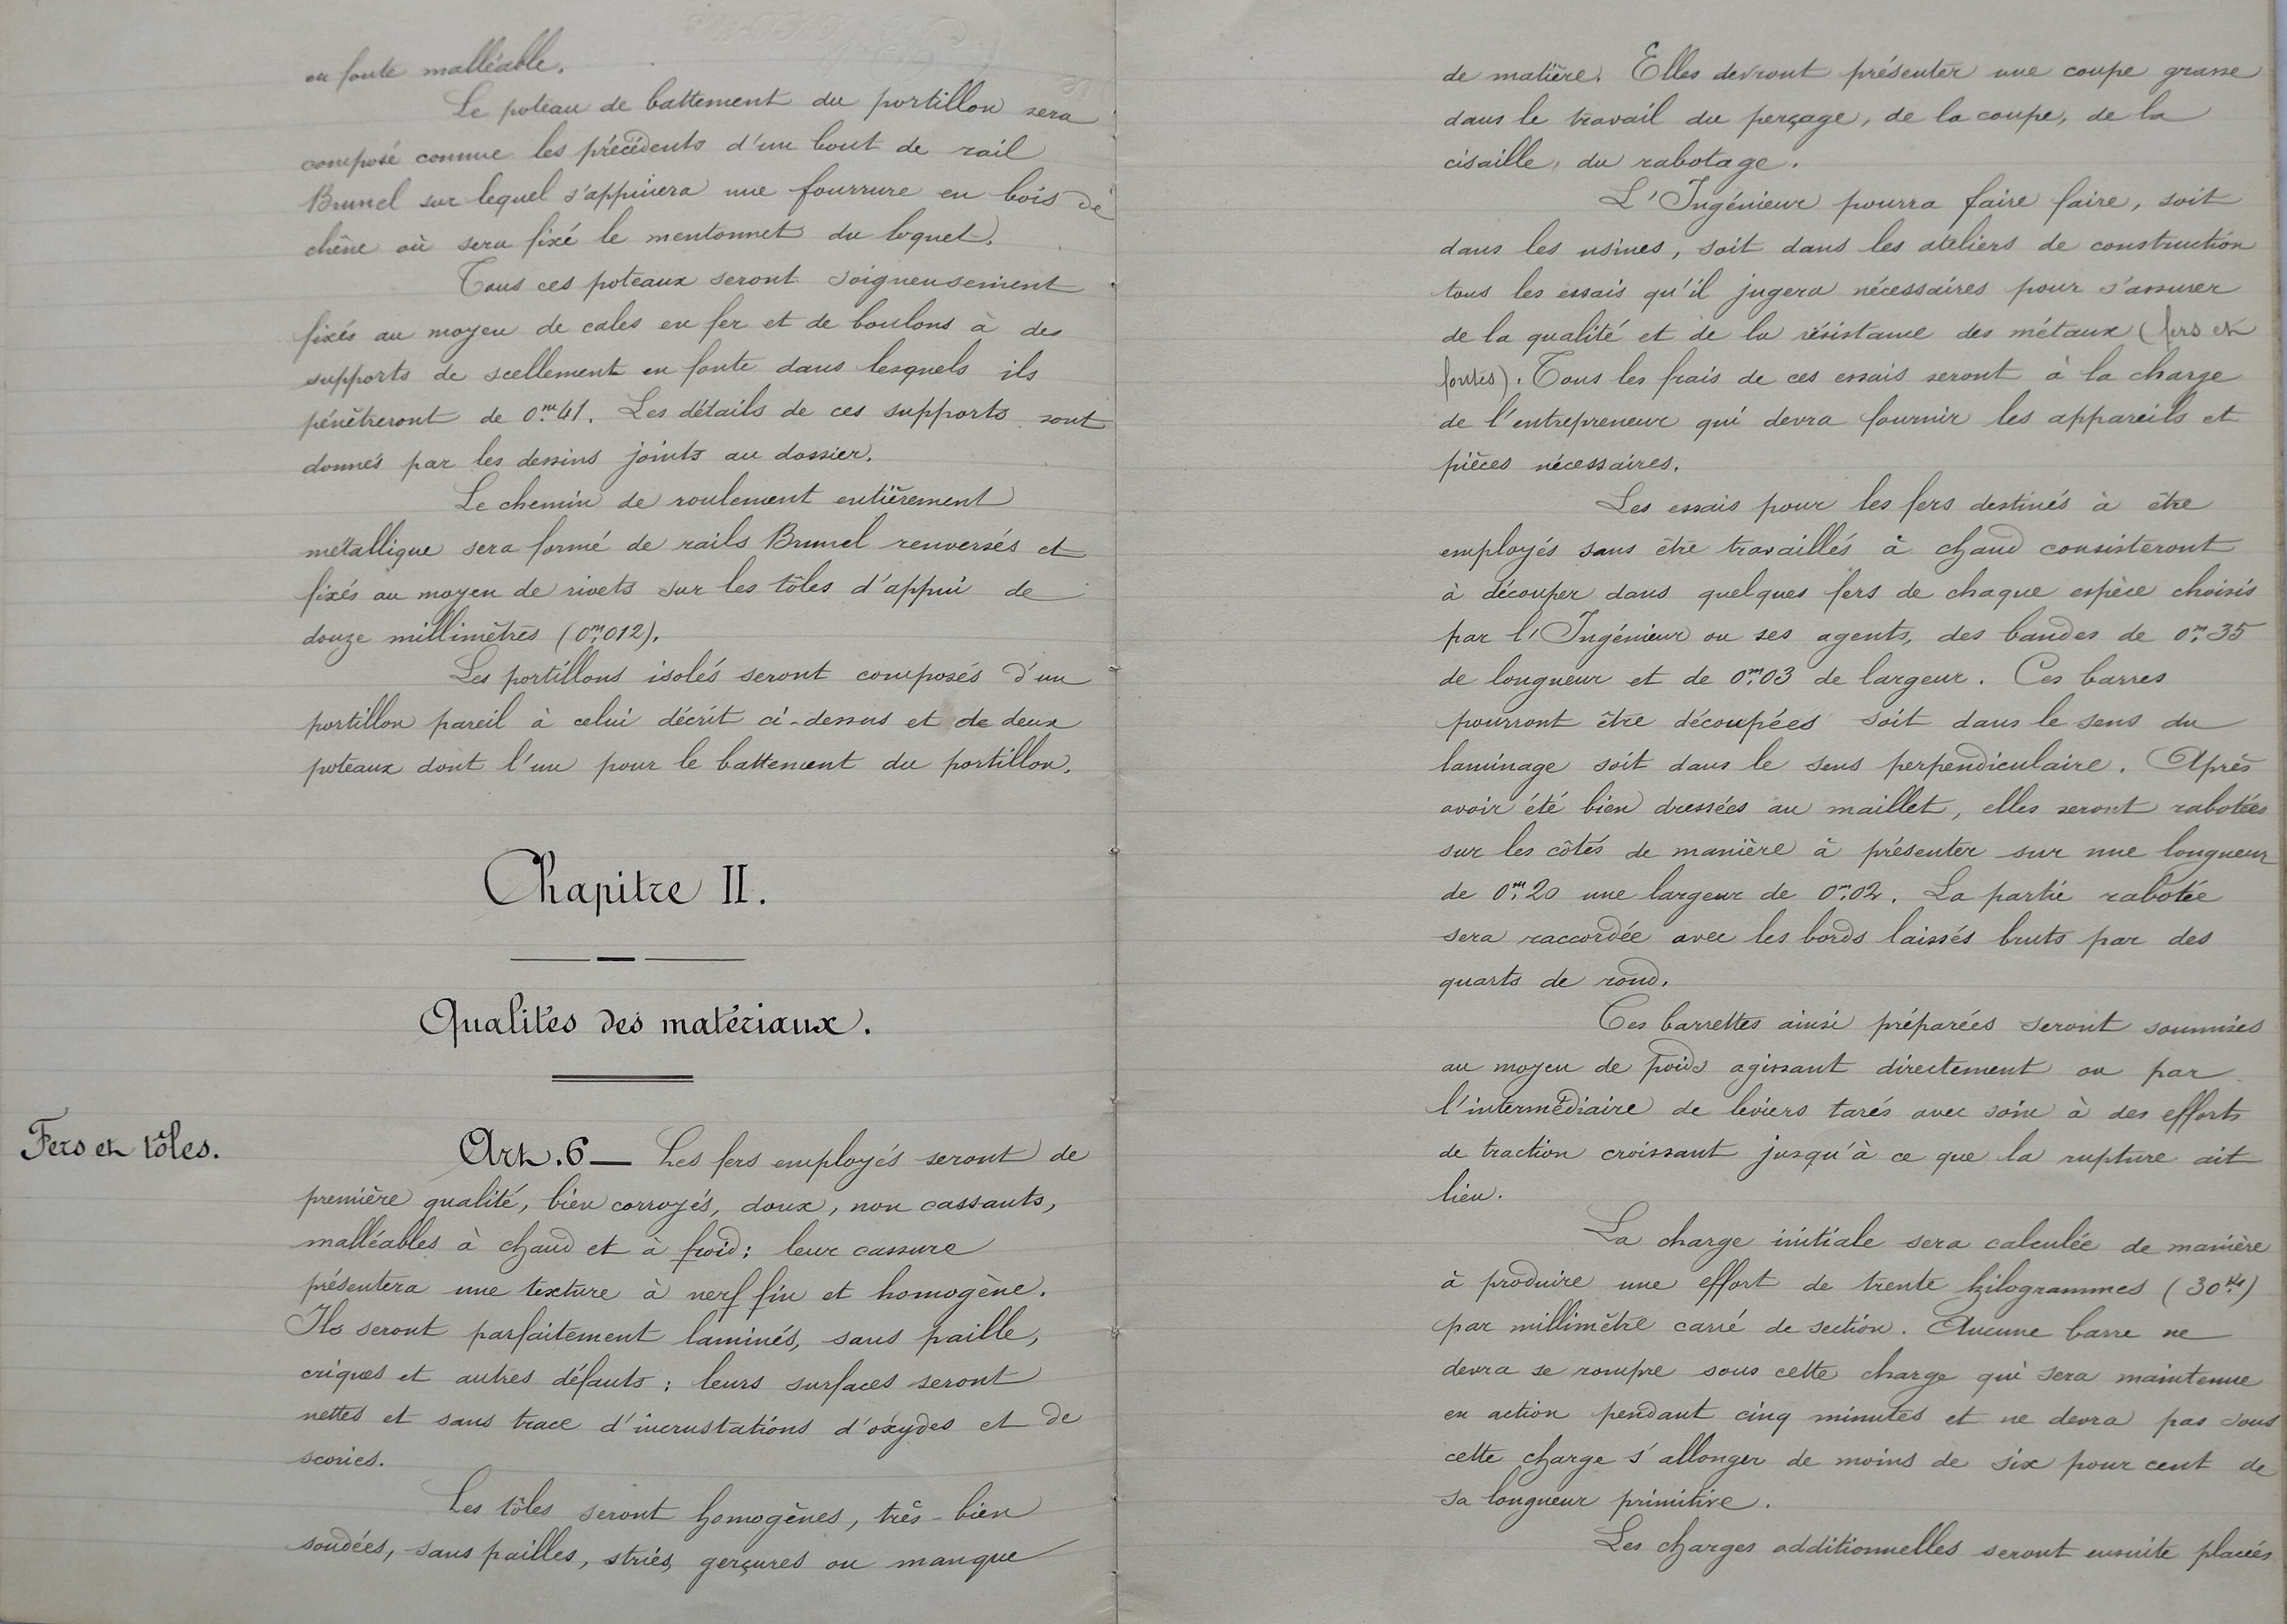 en fonte malléable.
Le poteau de battement du portillon sera
composé comme les précédents d'un bout de rail
Brunel sur lequel s'appuiera une fourrure en bois de
chêne où sera fixé le mentonnet du loquet.
Tous ces poteaux seront soigneusement
fixés au moyen de cales en fer et de boulons à des
supports de scellement en fonte dans lesquels ils
pénètreront de 0m,41. Les détails de ces supports sont
donnés par les dessins joints au dossier.
Le chemin de roulement entièrement
métallique sera formé de rails Brunel renversés et
fixés au moyen de rivets sur les tôles d'appui de
douze millimètres (0m,012).
Les portillons isolés seront composés d'un
portillon pareil à celui décrit ci-dessus et de deux
poteaux dont l'un pour le battement du portillon.
Chapitre II.
Qualités des matériaux.
Fers et tôles.
Art. 6 — Les fers employés seront de
première qualité, bien corroyés, doux, non cassants,
malléables à chaud et à froid; leur cassure
présentera une texture à nerf fin et homogène.
Ils seront parfaitement laminés, sans paille,
criques et autres défauts; leurs surfaces seront
nettes et sans trace d'incrustations d'oxydes et de
scories.
Les tôles seront homogènes, très-bien
soudées, sans pailles, stries, gerçures ou manque
de matière. Elles devront présenter une coupe grasse
dans le travail du perçage, de la coupe, de la
cisaille, du rabotage.
L'Ingénieur pourra faire faire, soit
dans les usines, soit dans les ateliers de construction
tous les essais qu'il jugera nécessaires pour s'assurer
de la qualité et de la résistance des métaux (fers et
fontes). Tous les frais de ces essais seront à la charge
de l'entrepreneur qui devra fournir les appareils et
pièces nécessaires.
Les essais pour les fers destinés à être
employés sans être travaillés à chaud consisteront
à découper dans quelques fers de chaque espèce choisis
par l'Ingénieur ou ses agents, des bandes de 0m,35
de longueur et de 0m,03 de largeur. Ces barres
pourront être découpées soit dans le sens du
laminage soit dans le sens perpendiculaire. Après
avoir été bien dressées au maillet, elles seront rabotées
sur les côtés de manière à présenter sur une longueur
de 0m,20 une largeur de 0m,02. La partie rabotée
sera raccordée avec les bords laissés bruts par des
quarts de rond.
Ces barrettes ainsi préparées seront soumises
au moyen de poids agissant directement ou par
l'intermédiaire de leviers tarés avec soin à des efforts
de traction croissant jusqu'à ce que la rupture ait
lieu.
La charge initiale sera calculée de manière
à produire une effort de trente kilogrammes (30ks)
par millimètre carré de section. Aucune barre ne
devra se rompre sous cette charge qui sera maintenue
en action pendant cinq minutes et ne devra pas sous
cette charge s'allonger de moins de six pour cent de
sa longueur primitive.
Les charges additionnelles seront ensuite placées